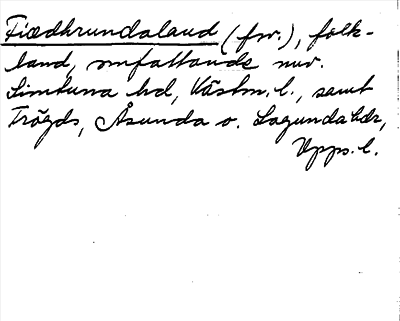 Fiædhrundaland (fw.), folk-
land, omfattande nuv.
Simtuna hd, Västm. l., samt
Trögds, Åsunda o. Lagunda hdr,
Upps. l.